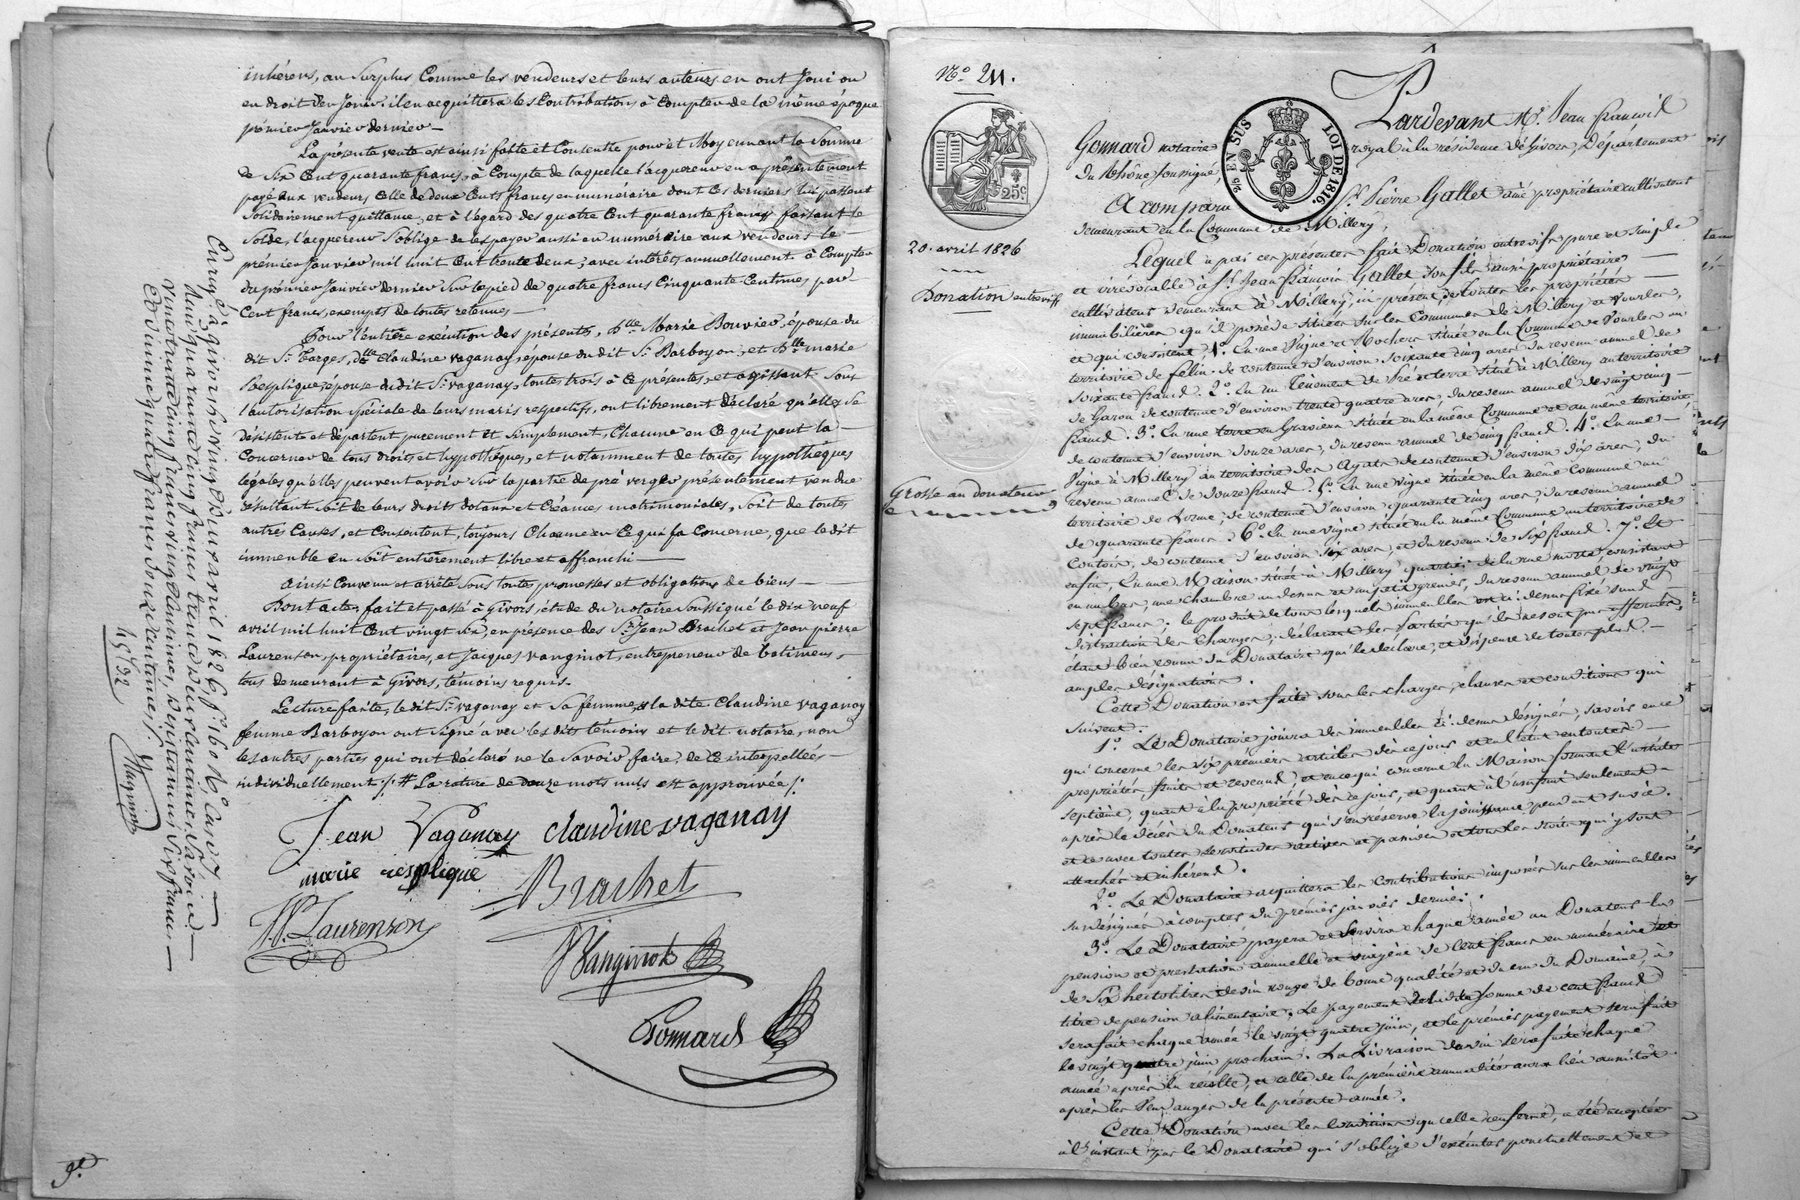 inhérens, au surplus comme les vendeurs et leurs auteurs en ont joui ou
en droit d'en jouir. il en acquittera les contributions à compter de la même époque
prémier janvier dernier —
La présente vente est ainsi faite et consentie pour et moyennant la somme
de six cent quarante francs, à compte de laquelle l'acquereur en a présentement
payé aux vendeurs celle de deux cents francs en numéraire dont ces derniers lui passent
solidairement quittance, et à l'égard des quatre cent quarante francs faisant le
solde, l'acquereur s'oblige de les payer aussi en numéraire aux vendeurs le
prémier janvier mil huit cent trente deux, avec intérêts annuellement à compter
du prémier janvier dernier sur le pied de quatre francs cinquante centimes par
cent francs, exempts de toutes retenues —
Pour l'entière exécution des présentes, dlle Marie Bouvier, épouse du
dit Sr Farges, dlle Claudine Vaganay, épouse du dit Sr Barboyon, et dlle marie
Resplique, épouse du dit Sr Vaganay, toutes trois à ce présentes, et agissant sous
l'autorisation spéciale de leurs maris respectifs, ont librement déclaré qu'elles se
désistent et départent purement et simplement, chacune en ce qui peut la
concerner de tous droits et hypothèques, et notamment de toutes hypothèques
légales qu'elles peuvent avoir sur la partie de pré verger présentement vendue
résultant soit de leurs droits dotaux et créances matrimoniales, soit de toutes
autres causes, et consentent, toujours chacune en ce qui la concerne, que le dit
immeuble en soit entièrement libre et affranchi —
Ainsi convenu et arrêté sous toutes promesses et obligations de biens —
Dont acte, fait et passé à Givors, étude du notaire soussigné le dix neuf
avril mil huit cent vingt six, en présence des Srs Jean Brachet et Jean pierre
Laurenson, propriétaires, et Jacques Vanginot, entrepreneur de batimens,
tous demeurant à Givors, témoins requis.
Lecture faite, le dit Sr Vaganay et sa femme, & la dite Claudine Vaganay
femme Barboyon ont signé avec les dits témoins et le dit notaire, non
les autres parties qui ont déclaré ne le savoir faire, de ce interpellées
individuellement /. # La rature de douze mots nuls est approuvée /.
Jean Vaganay Claudine vaganay
marie resplique
Brachet
J.P. Laurenson
Vanginot
Gonnard
Enregé à givors le vingt deux avril 1826, fo 160 Ro Cases 7
45f 32
9e.
No 211.
25c
25 EN SUS
LOI DE 1816.
20. avril 1826
Donation entrevifs
Grosse au donateur
Pardevant Me Jean françois
Gonnard notaire royal à la résidence de Givors, Département
du Rhône, soussigné,
A comparu Sr Pierre Gallet ainé propriétaire cultivateur
demeurant en la Commune de Millery,
Lequel a par ces présentes fait Donation entrevifs, pure et simple
et irrévocable à Sr Jean françois Gallet son fils aussi propriétaire
cultivateur demeurant à Millery, ici présent, de toutes les propriétés
immobilières qu'il possède situées sur les Communes de Millery et Vourles,
et qui consistent, 1o. En une vigne et Rochers située en la Commune de Vourles au
territoire de félin, de contenue d'environ soixante cinq ares, du revenu annuel de
soixante francs. 2o. En un ténement de Pré et terre situé à Millery au territoire
de Garon de contenue d'environ trente quatre ares, du revenu annuel de vingt cinq
francs. 3o. En une terre en Graviera située en la même Commune et au même territoire,
de contenue d'environ douze ares, du revenu annuel de cinq francs. 4o. En une
vigne à Millery au territoire des Ayats de contenue d'environ dix ares, du
revenu annuel de douze francs. 5o. En une vigne située en la même Commune au
territoire de de contenue d'environ quarante cinq ares, du revenu annuel
de quarante francs. 6o. En une vigne située en la même Commune au territoire de
de contenue d'environ six ares, et du revenu de six francs. 7o. Et
enfin, En une Maison située à Millery quartier de la rue consistant
en un bas, une chambre au dessus et un petit grenier, du revenu annuel de vingt
sept francs. le produit de tous lesquels immeubles est ci-dessus fixé sans
distraction des charges, déclarant les parties qu'ils ne sont pas affermés,
étant bien connus du Donataire qui le déclare, et dispense de toutes plus
amples désignations.
Cette Donation est faite sous les charges, clauses et conditions qui
suivent.
1o. Le Donataire jouira des immeubles ci-dessus désignés, savoir en ce
qui concerne les six premiers articles dès ce jour et en l'état en toute
propriétés, fruits et revenus, et en ce qui concerne la Maison formant l'article
septième, quant à la propriété dès ce jour, et quant à l'usufruit seulement
après le décès du Donateur qui s'en réserve la jouissance pendant sa vie.
et ce avec toutes servitudes actives et passives et tous les droits qui y sont
attachés et inhérens.
2o. Le Donataire acquittera les contributions imposées sur les immeubles
susdésignés à compter du prémier janvier dernier.
3o. Le Donataire payera et servira chaque année au Donateur la
pension et prestation annuelle et viagère de cent francs en numéraire et
de six hectolitres de vin rouge de bonne qualité et du cru du Domaine, à
titre de pension alimentaire. Le payement de la dite somme de cent francs
sera fait chaque année le vingt quatre juin, et le prémier payement sera fait
le vingt quatre juin prochain. La Livraison du vin sera faite chaque
année après la récolte, et celle de la prémière annualité aura lieu aussitôt
après les vendanges de la présente année.
Cette Donation avec les conditions qu'elle renferme, a été acceptée
à l'instant par le Donataire qui s'oblige d'exécuter ponctuellement et